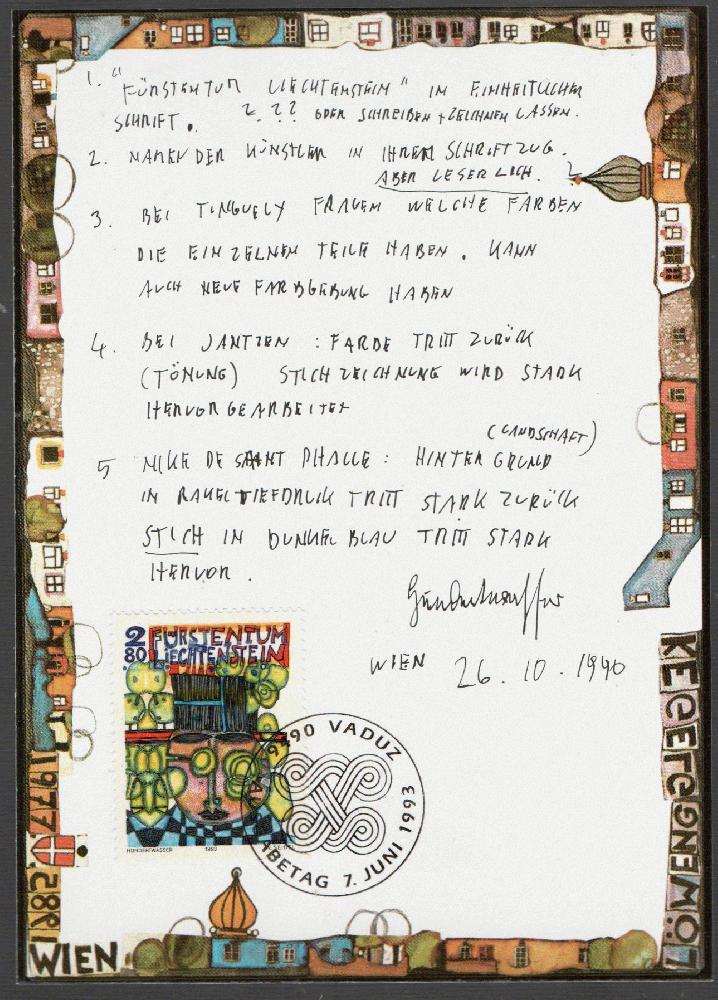 1. "FÜRSTENTUM LIECHTENSTEIN" IM EINHEITLICHER
SCHRIFT. ? ? ? ODER SCHREIBEN + ZEICHNEN LASSEN.
2. NAMEN DER KÜNSTLER IN IHREM SCHRIFTZUG.
ABER LESERLICH.
3. BEI TINGUELY FRAGEN WELCHE FARBEN
DIE EINZELNEN TEILE HABEN. KANN
AUCH NEUE FARBGEBUNG HABEN
4. BEI JANTZEN : FARBE TRITT ZURÜCK
(TÖNUNG) STICHZEICHNUNG WIRD STARK
HERVORGEARBEITET
(LANDSCHAFT)
5 NIKI DE SAINT PHALLE : HINTERGRUND
IN RAKELTIEFDRUCK TRITT STARK ZURÜCK
STICH IN DUNKELBLAU TRITT STARK
HERVOR.
Hundertwasser
WIEN 26. 10. 1990
2
80
FÜRSTENTUM
LIECHTENSTEIN
HUNDERTWASSER 1993
9490 VADUZ
AUSGABETAG 7. JUNI 1993
1977
1982
WIEN
LÖWENGASSE
KEGELGASSE